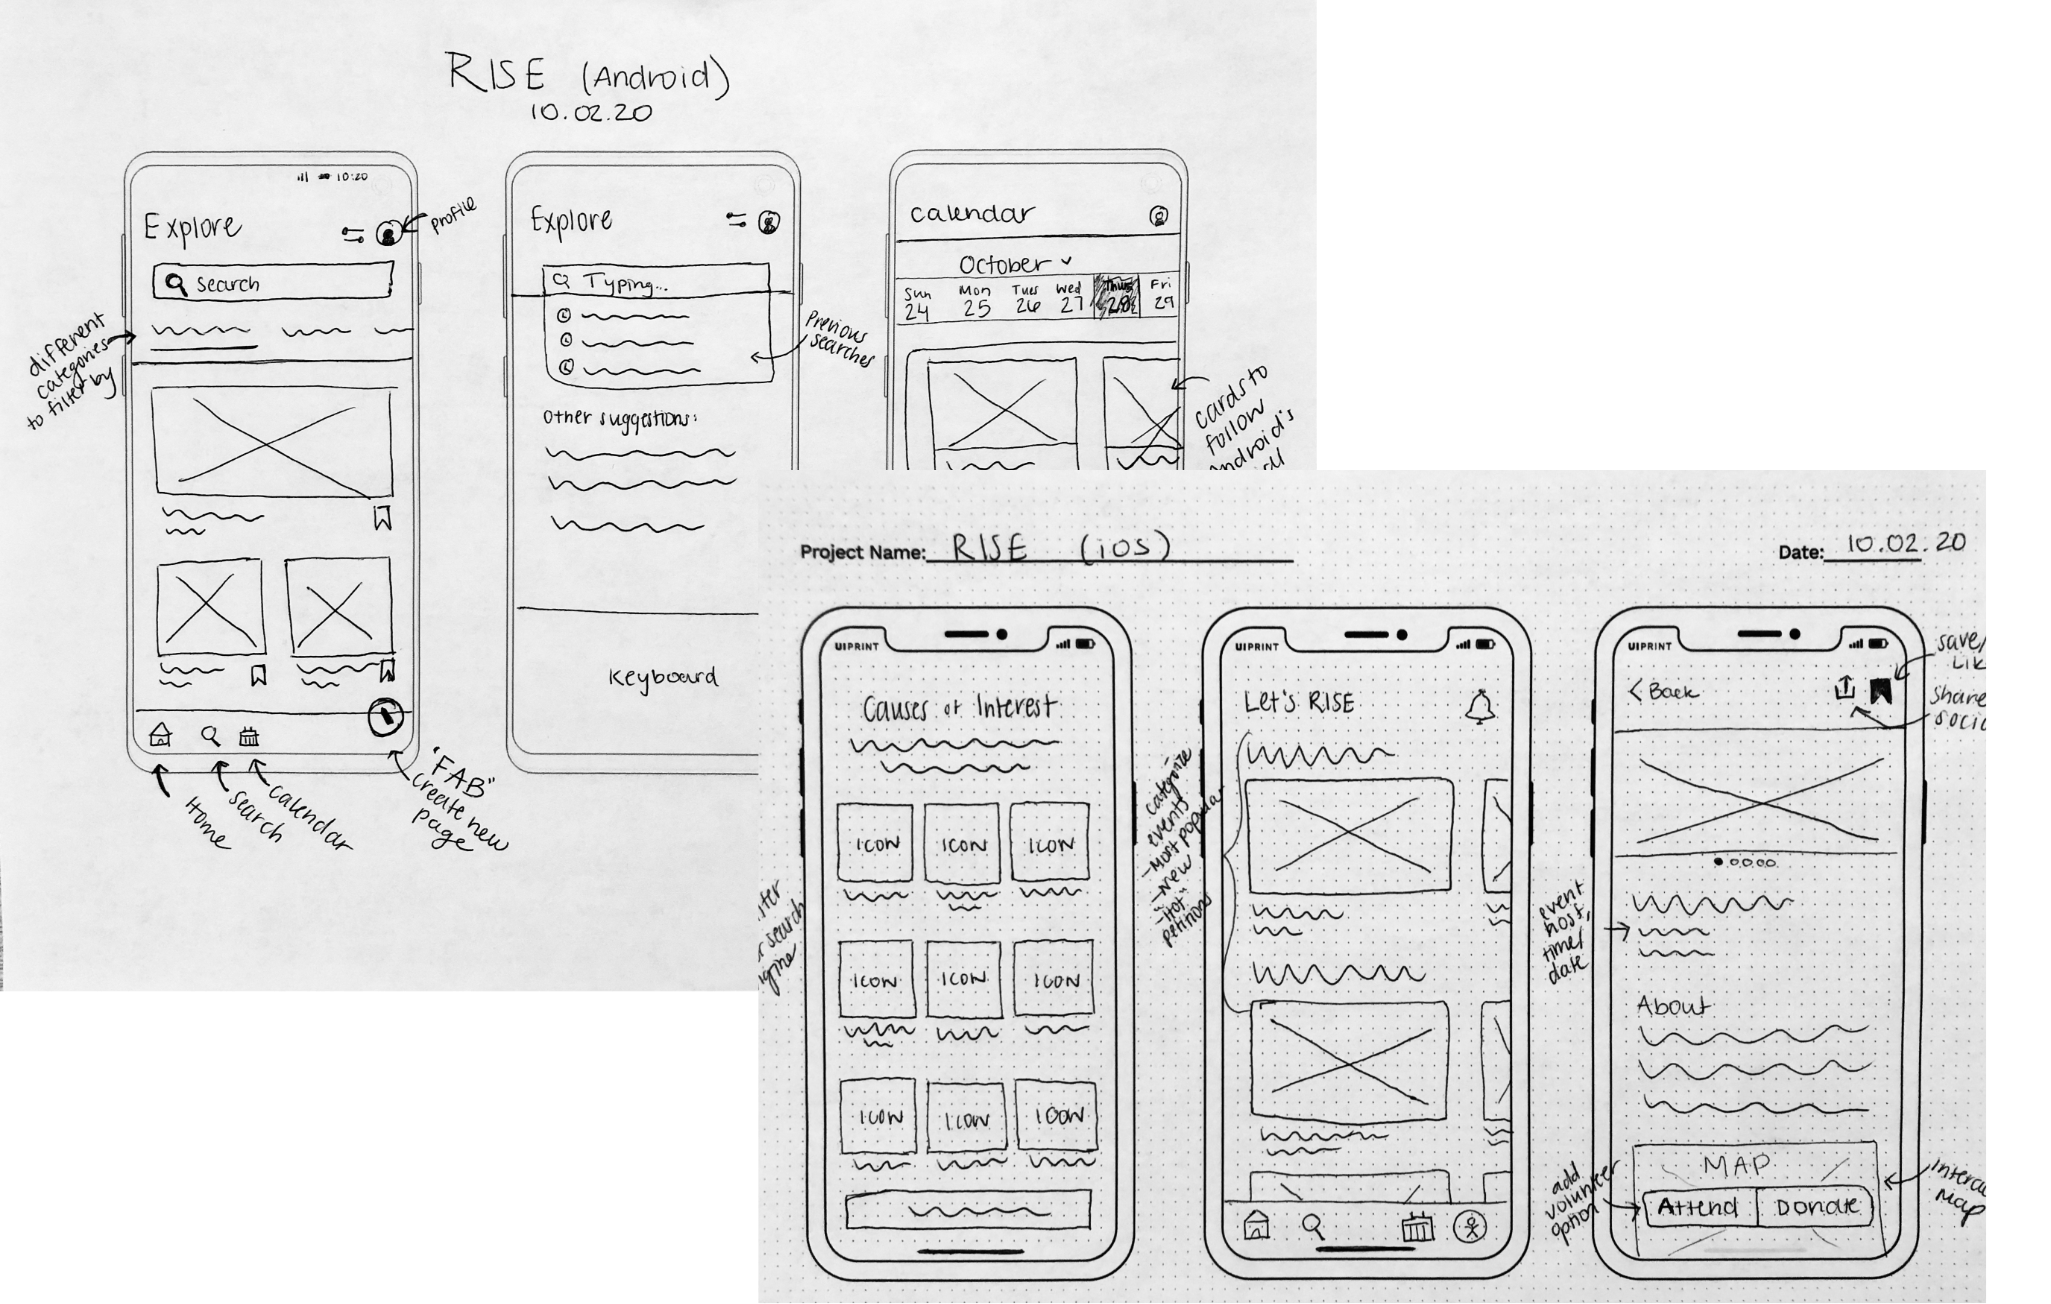 RISE (Android)
10.02.20
10:20
Explore
profile
search
different
categories
to filter by
Home
search
calendar
"FAB"
create new
page
Explore
Typing...
Previous
searches
Other suggestions:
Keyboard
calendar
October
Sun Mon Tues Wed Thurs Fri
24 25 26 27 28 29
cards to
follow
Android's
Project Name: RISE (iOS)
Date: 10.02.20
UIPRINT
Causes of Interest
ICON ICON ICON
ICON ICON ICON
ICON ICON ICON
search
UIPRINT
Let's RISE
categorize
events
- Most popular
- New
- "Hot"
petitions
UIPRINT
< Back
save/
Share
event
host,
time/
date
About
MAP
Attend Donate
add
volunteer
option
Map